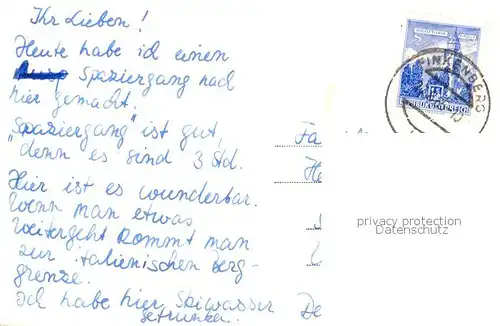 Ihr Lieben!
Heute habe ich einen
Spaziergang nach
hier gemacht.
"Spaziergang" ist gut,
denn es sind 3 Std.
Hier ist es wunderbar.
Wenn man etwas
weitergeht kommt man
zur italienischen Berg-
grenze.
Ich habe hier Skiwasser
getrunken.
INKENBERG
REPUBLIK ÖSTERREICH
Fa
He
De
privacy protection
Datenschutz